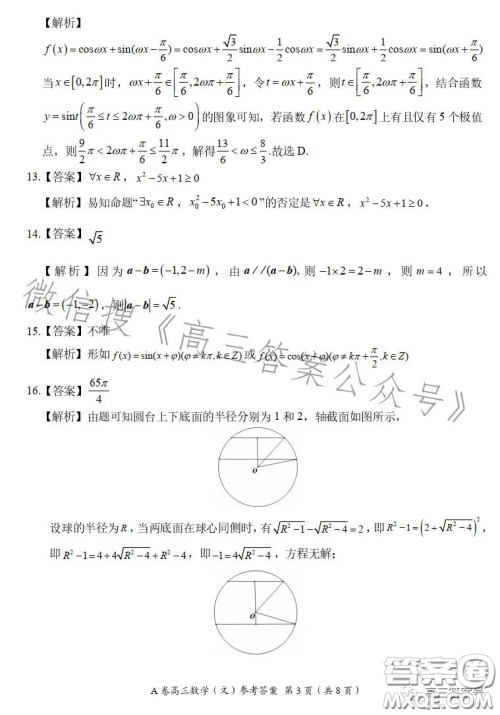 【解析】
f(x)=cosωx+sin(ωx−π/6)=cosωx+√3/2 sinωx−1/2 cosωx=√3/2 sinωx+1/2 cosωx=sin(ωx+π/6)
当x∈[0,2π]时，ωx+π/6∈[π/6,2ωπ+π/6]，令t=ωx+π/6，则t∈[π/6,2ωπ+π/6]，结合函数
y=sint(π/6≤t≤2πω+π/6,ω>0)的图象可知，若函数f(x)在[0,2π]上有且仅有5个极值
点，则9/2π<2ωπ+π/6≤11/2π，解得13/6<ω≤8/3.故选D.
13.【答案】∀x∈R，x²−5x+1≥0
【解析】易知命题“∃x₀∈R，x₀²−5x₀+1<0”的否定是∀x∈R，x²−5x+1≥0．
14.【答案】√5
【解析】因为a−b=(−1,2−m)，由a//(a−b),则−1×2=2−m，则m=4，所以
a−b=(−1,−2)，则|a−b|=√5.
15.【答案】不唯一
【解析】形如f(x)=sin(x+φ)(φ≠kπ,k∈Z)或f(x)=cos(x+φ)(φ≠kπ+π/2,k∈Z)
16.【答案】65π/4
【解析】由题可知圆台上下底面的半径分别为1和2，轴截面如图所示，
O
设球的半径为R,当两底面在球心同侧时,有√(R²−1)−√(R²−4)=2，即R²−1=(2+√(R²−4))²，
即R²−1=4+4√(R²−4)+R²−4，即−1=4√(R²−4)，方程无解；
O
A卷高三数学（文）参考答案 第3页（共8页）
微信搜《高三答案公众号》
答案圈
MXQE.COM